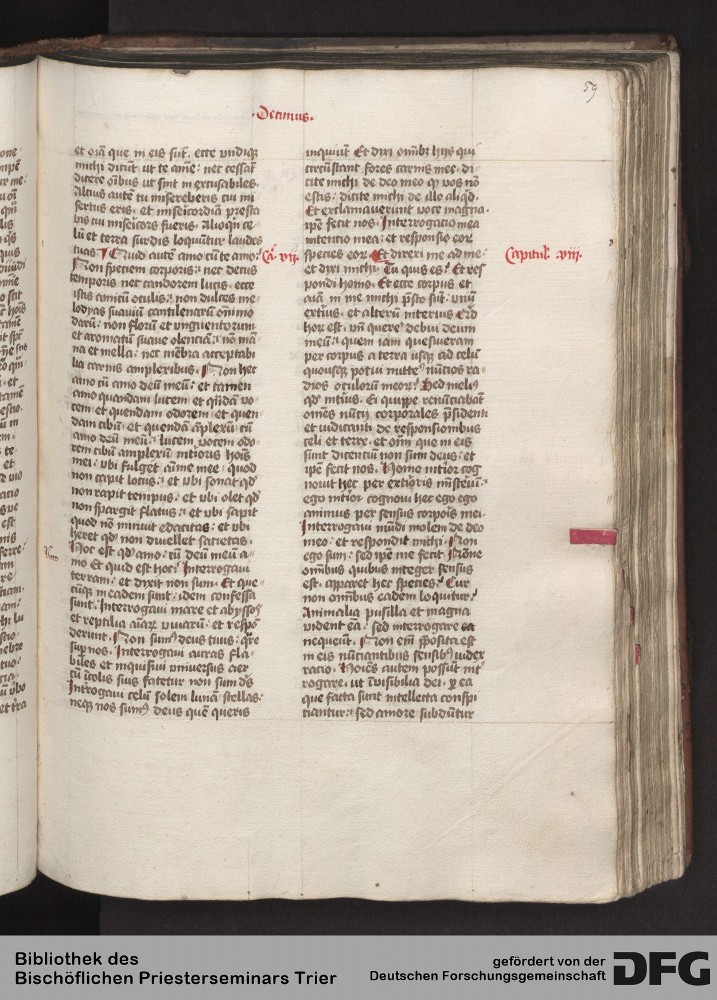 59
·Decimus·
et oīa que in eis sūt · ecce vndiqȝ
michi dicūt ut te amē : nec cessāt
dicere oībus ut sint in excusabiles ·
Altius autē tu misereberis cui mi
sertus eris · et misericordiā presta
bis cui misericors fueris · Alioqn ce
lū et terra surdis loquūtur laudes
tuas · Quid autē amo cū te amo ·
Ca · vij ·
Non speciem corporis : nec decus
temporis nec candorem lucis · ecce
istis amicū oculis : non dulces me
lodyas suauiū cantilenarū oīmo
darū : non florū et vnguentorum
et aromatū suaue olentiā : nō mā
na et mella : nec mēbra acceptabi
lia carnis amplexibus · Non hec
amo cū amo deū meū : et tamen
amo quandam lucem · et qndā vo
cem et quendam odorem · et quen
dam cibū · et quendā āplexū cū
amo deū meū : lucem vocem odo
rem cibū amplexū interioris hoīs
mei · vbi fulget aīme mee · quod
non capit locus : et vbi sonat qd
non rapit tempus : et vbi olet qd
non spargit flatus : et vbi sapit
quod nō minuit edacitas : et vbi
heret qd non diuellet sacietas ·
Hoc est qd amo : cū deū meū a
mo Et quid est hoc : Interrogaui
terram : et dixit non sum · Et que
cūqȝ in eadem sunt : idem confessa
sunt · Interrogaui mare et abyssos
et reptilia aīarȝ viuarū : et respō
derunt · Non sumus deus tuus : qre
sup nos · Interrogaui auras fla
biles et inquisiui vniuersus aer
cū īcolis suis fatetur non sum ds
Introgaui celū solem lunā stellas :
neqȝ nos sumus deus quē queris
inquiūt Et dixi omībȝ hijs qui
circūstant fores carnis mee · di
cite michi de deo meo qȝ vos nō
estis : dicite michi de illo aliqd ·
Et exclamauerunt voce magna ·
ipse fecit nos · Interrogacio mea
intentio mea : et responsio eorȝ
species eorȝ · Et direxi me ad me :
Capitulȝ · viij ·
et dixi michi · Tu quis es : Et res
pondi homo · Et ecce corpus et
aīa in me michi psto sūt · vnū
exteri9 · et alterū interius Qid
hor est · vn querere debui deum
meū : quem iam quesiueram
per corpus a terra usqȝ ad celū
quousqȝ potui mittere nūctios ra
dios oculorū meorȝ · Sed meli9
qd inti9 · Ei quippe renūctiabāt
omēs nūctij corporales p̄sidenti
et iudicanti de responsionibus
celi et terre · et oīm que in eis
sunt dicentiū non sum deus : et
ipse fecit nos · Homo intior cog
nouit hec per exterioris misteriū :
ego intior cognoui hec ego ego
animus per sensus corporis mei ·
Interrogaui mūdi molem de deo
meo : et respondit michi · Non
ego sum : sed ipse me fecit · Nonne
omībus quibus integer sensus
est · apparet hec species : Cur
non omībus eadem loquitur :
Animalia pusilla et magna
vident ea : sed interrogare ea
nequeunt · Non enī pposita est
in eis nūctiantibus sensibȝ iudex
racio · Hoīes autem possūt int
rogare · ut īuisibilia dei · p ea
que facta sunt intellecta conspi
ciantur : sed amore subdūtur
Bibliothek des
Bischöflichen Priesterseminars Trier
gefördert von der
Deutschen Forschungsgemeinschaft
DFG